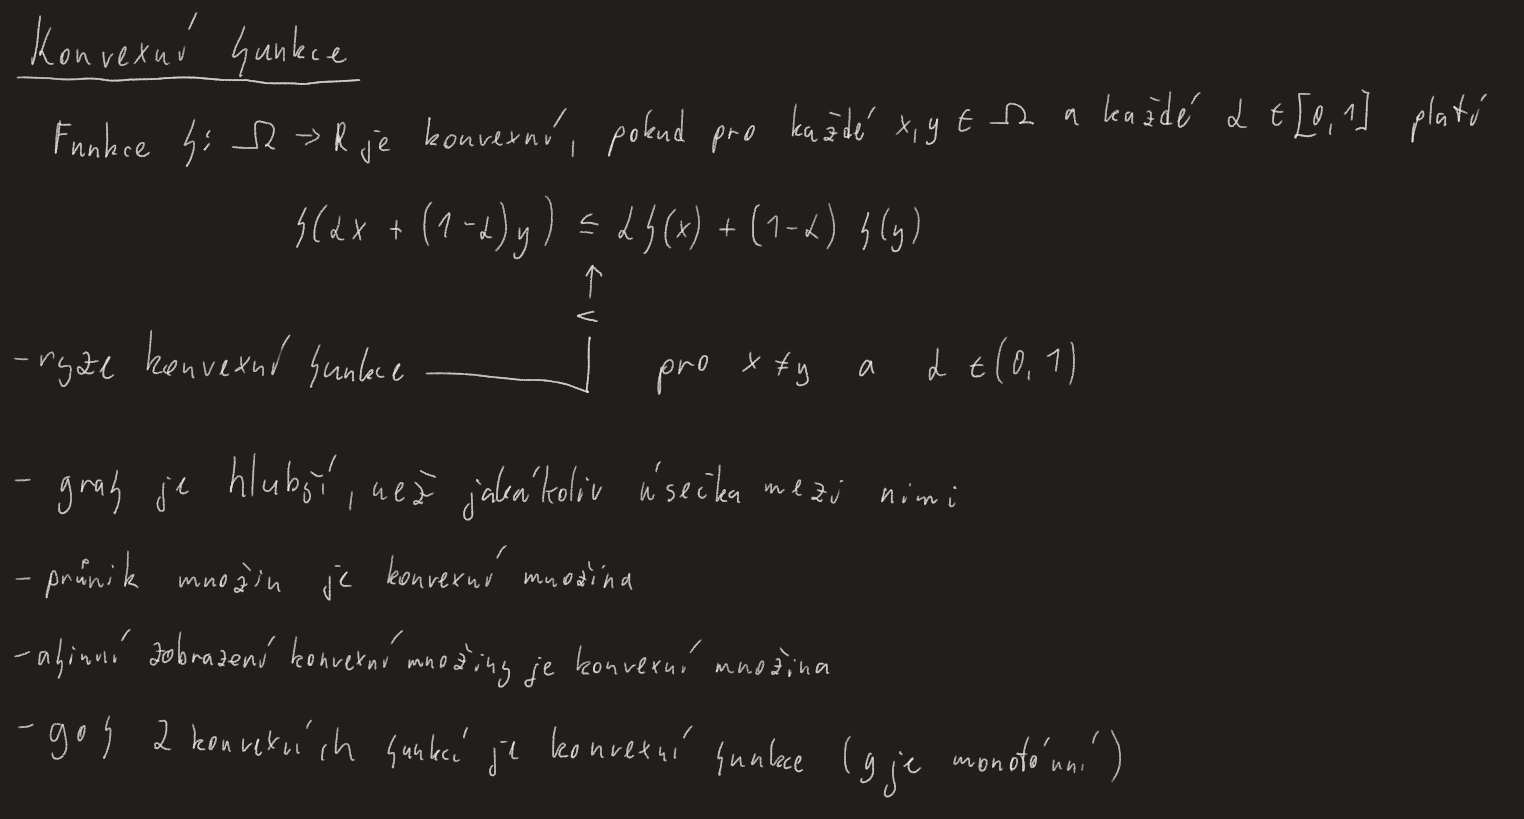 Konvexní funkce
Funkce f: Ω → R je konvexní, pokud pro každé x, y ∈ Ω a každé α ∈ [0, 1] platí
f(αx + (1-α)y) ≤ αf(x) + (1-α) f(y)
↑
<
- ryze konvexní funkce pro x ≠ y a α ∈ (0, 1)
- graf je hlubší, než jakákoliv úsečka mezi nimi
- průnik množin je konvexní množina
- afinní zobrazení konvexní množiny je konvexní množina
- g o f 2 konvexních funkcí je konvexní funkce (g je monotónní)